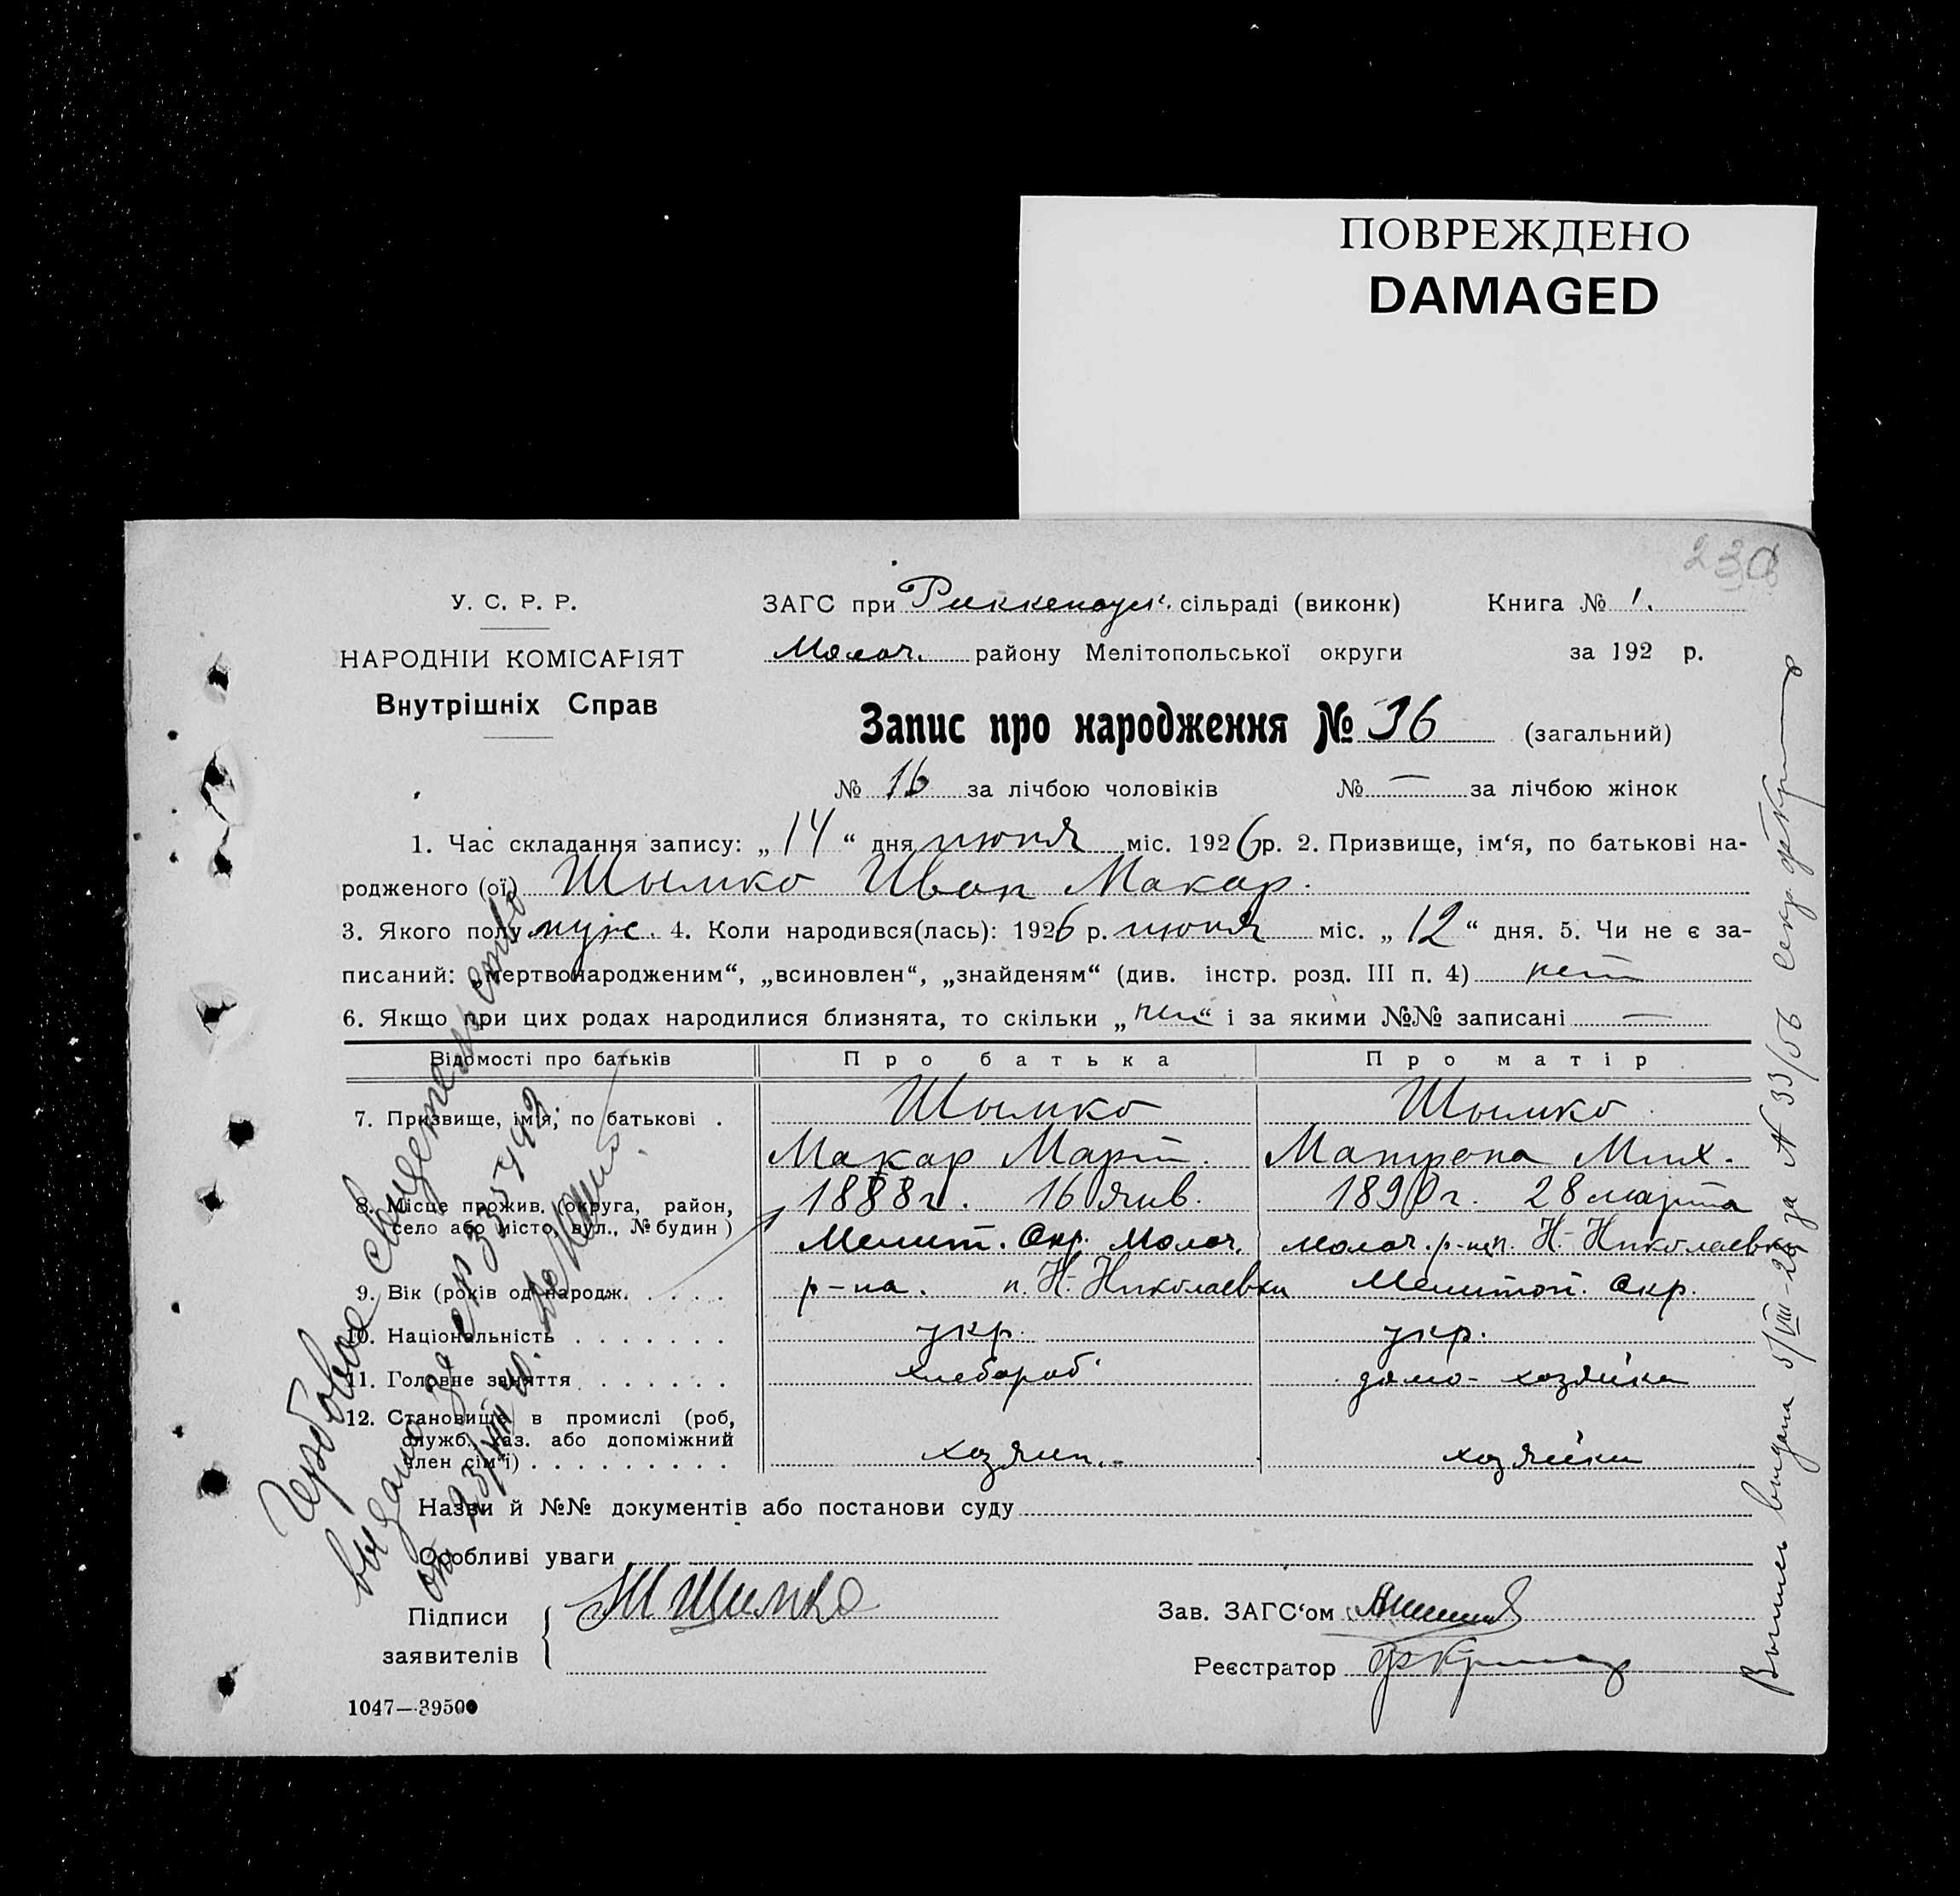 ПОВРЕЖДЕНО
DAMAGED
У. С. Р. Р.
НАРОДНІИ КОМІСАРІЯТ
Внутрішніх Справ
ЗАГС при Риккенауск. сільраді (виконк) Книга № 1.
Молоч. району Мелітопольської округи за 192 р.
Запис про народження № 36 (загальний)
№ 16 за лічбою чоловіків № — за лічбою жінок
1. Час складання запису: „14“ дня июня міс. 1926 р. 2. Призвище, ім‘я, по батькові на-
родженого (ої) Шымко Иван Макар.
3. Якого полу муж. 4. Коли народився(лась): 1926 р. июня міс. „12“ дня. 5. Чи не є за-
писаний: „мертвонародженим“, „всиновлен“, „знайденям“ (див. інстр. розд. III п. 4) нет
6. Якщо при цих родах народилися близнята, то скільки „нет“ і за якими №№ записані —
Відомості про батьків Про батька Про матір
7. Призвище, ім‘я, по батькові . Шымко Шымко
Макар Март. Матрона Мих.
8. Місце прожив. (округа, район, село або місто, вул., № будин) 1888 г. 16 янв. 1890 г. 28 марта
Мелит. Окр. Молоч. Молоч. р-на п. Н-Николаевки
9. Вік (років од народж. . . . . р-на. п. Н-Николаевки Мелитоп. Окр.
10. Національність . . . . . . . укр. укр.
11. Головне заняття . . . . . . хлебороб домо-хозяйка
12. Становище в промислі (роб, служб., хаз. або допоміжний член сім‘ї) . . . . . . . . . хозяин. хозяйка
Назви й №№ документів або постанови суду
Особливі уваги
Підписи заявителів М Шимко
Зав. ЗАГС‘ом
Реєстратор
1047—39500
Гербовое свидетельство
выдано за
Выпись выдана 5/VIII-26 за N 33/56 секр.